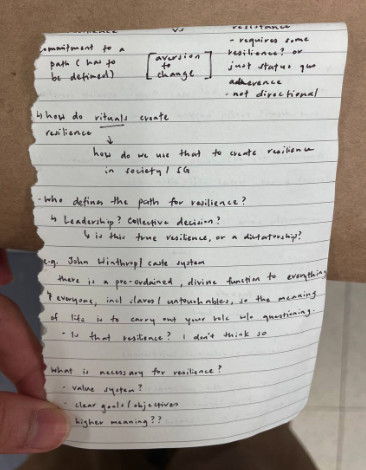 resilience vs resistance
commitment to a
path (has to
be defined)
[aversion
to
change]
- requires some
resilience? or
just status quo
adherence
- not directional
↳ how do rituals create
resilience
↓
how do we use that to create resilience
in society / SG
- who defines the path for resilience?
↳ Leadership? Collective decision?
↳ is this true resilience, or a dictatorship?
e.g. John Winthrop / caste system
there is a pre-ordained, divine function to everything
& everyone, incl slaves / untouchables, so the meaning
of life is to carry out your role w/o questioning.
- Is that resilience? I don't think so
What is necessary for resilience?
- value system?
- clear goals/objectives
- higher meaning??